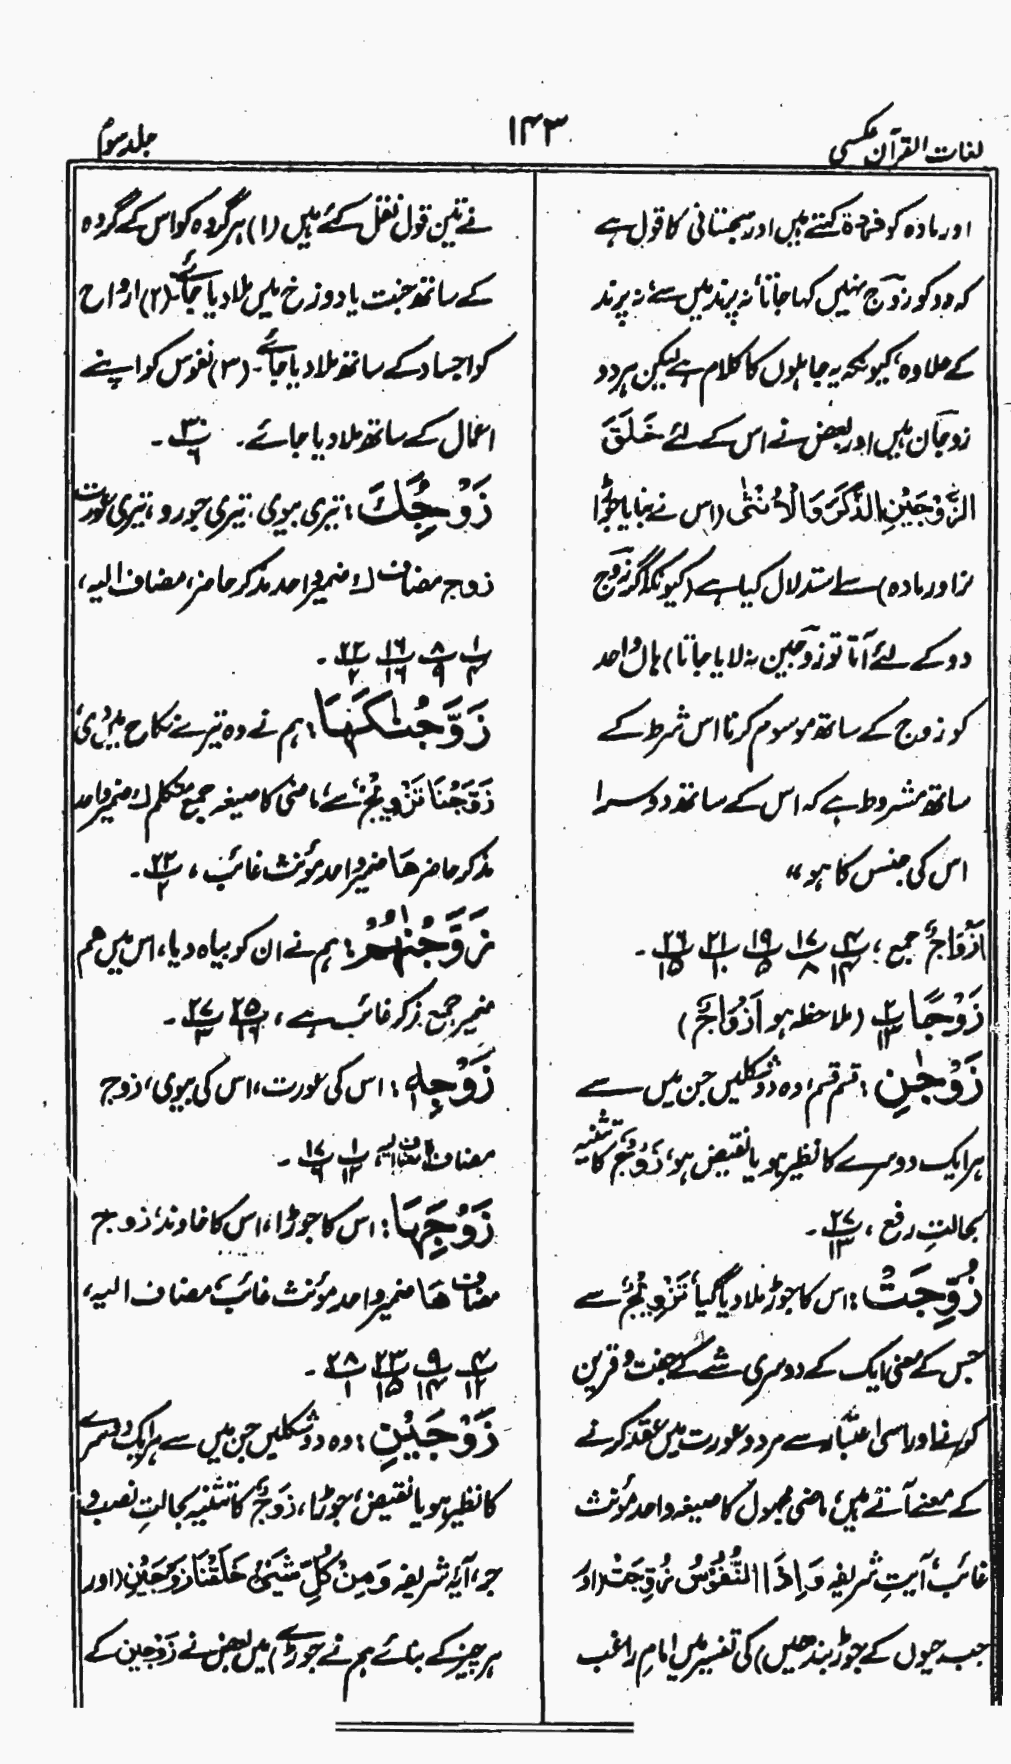 لغات القرآن عکسی
۱۴۳
جلد سوم
اور مادہ کو فردۃ کہتے ہیں اور سجستانی کا قول ہے
کہ دو کو زوج نہیں کہا جاتا نہ پرند میں سے نہ پرند
کے علاوہ، کیونکہ یہ جاہلوں کا کلام ہے لیکن ہر دو
زوجان ہیں اور بعض نے اس کے لئے خَلَقَ
الزَّوْجَیْنِ الذَّکَرَ وَالْاُنْثٰی (اس نے بنایا جوڑا
نر اور مادہ) سے استدلال کیا ہے (کیونکہ اگر زوج
دو کے لئے آتا تو زوجین نہ لایا جاتا) ہاں واحد
کو زوج کے ساتھ موسوم کرنا اس شرط کے
ساتھ مشروط ہے کہ اس کے ساتھ دوسرا
اس کی جنس کا ہو"
اَزْوَاجٌ جمع ؛ ۴/۱۴ ۱۷/۸ ۱۹/۵ ۲۱/۱۰ ۲۶/۱۵ ۔
زَوْجًا ۲/۱۳ (ملاحظہ ہو اَزْوَاجٌ)
زَوْجٰنِ : قسم قسم، وہ دو شکلیں جن میں سے
ہر ایک دوسرے کا نظیر ہو یا نقیض ہو، زَوْجٌ کا تثنیہ
بحالتِ رفع ، ۲۷/۱۳ ۔
زُوِّجَتْ : اس کا جوڑ ملا دیا گیا تَزْوِیْجٌ سے
جس کے معنی ایک کے دوسری شے کے جفت و قرین
کرنے اور اسی اعتبار سے مرد و عورت میں عقد کرنے
کے معنے آتے ہیں، ماضی مجہول کا صیغہ واحد مؤنث
غائب، آیتِ شریفہ وَاِذَا النُّفُوْسُ زُوِّجَتْ (اور
جب جیوں کے جوڑ بندھیں) کی تفسیر میں امام راغب
نے تین قول نقل کئے ہیں (۱) ہر گروہ کو اس کے گروہ
کے ساتھ جنت یا دوزخ میں ملا دیا جائے۔ (۲) ارواح
کو اجساد کے ساتھ ملا دیا جائے۔ (۳) نفوس کو اپنے
اعمال کے ساتھ ملا دیا جائے۔ ۳۰/۶ ۔
زَوْجُكَ : تیری بیوی، تیری جورو، تیری عورت
زوج مضاف ك ضمیر واحد مذکر حاضر، مضاف الیہ،
۱/۴ ۸/۹ ۱۶/۱۶ ۲۲/۲ ۔
زَوَّجْنٰكَهَا : ہم نے وہ تیرے نکاح میں دی،
زَوَّجْنَا تَزْوِیْجٌ سے ماضی کا صیغہ جمع متکلم ك ضمیر واحد
مذکر حاضر هَا ضمیر واحد مؤنث غائب ، ۲۲/۲ ۔
زَوَّجْنٰهُمْ : ہم نے ان کو بیاہ دیا، اس میں هم
ضمیر جمع مذکر غائب ہے ، ۲۵/۱۶ ۲۷/۳ ۔
زَوْجِهٖ : اس کی عورت، اس کی بیوی، زوج
مضاف ہ مضاف الیہ، ۱/۱۲ ۱۷/۹ ۔
زَوْجَهَا : اس کا جوڑا، اس کا خاوند، زوج
مضاف هَا ضمیر واحد مؤنث غائب، مضاف الیہ،
۴/۱۲ ۹/۱۴ ۲۳/۱۵ ۲۸/۱ ۔
زَوْجَیْنِ : وہ دو شکلیں جن میں سے ہر ایک دوسرے
کا نظیر ہو یا نقیض، جوڑا، زَوْجٌ کا تثنیہ بحالتِ نصب و
جر، آیۂ شریفہ وَمِنْ کُلِّ شَیْئٍ خَلَقْنَا زَوْجَیْنِ (اور
ہر چیز کے بنائے ہم نے جوڑے) میں بعض نے زَوْجین کے